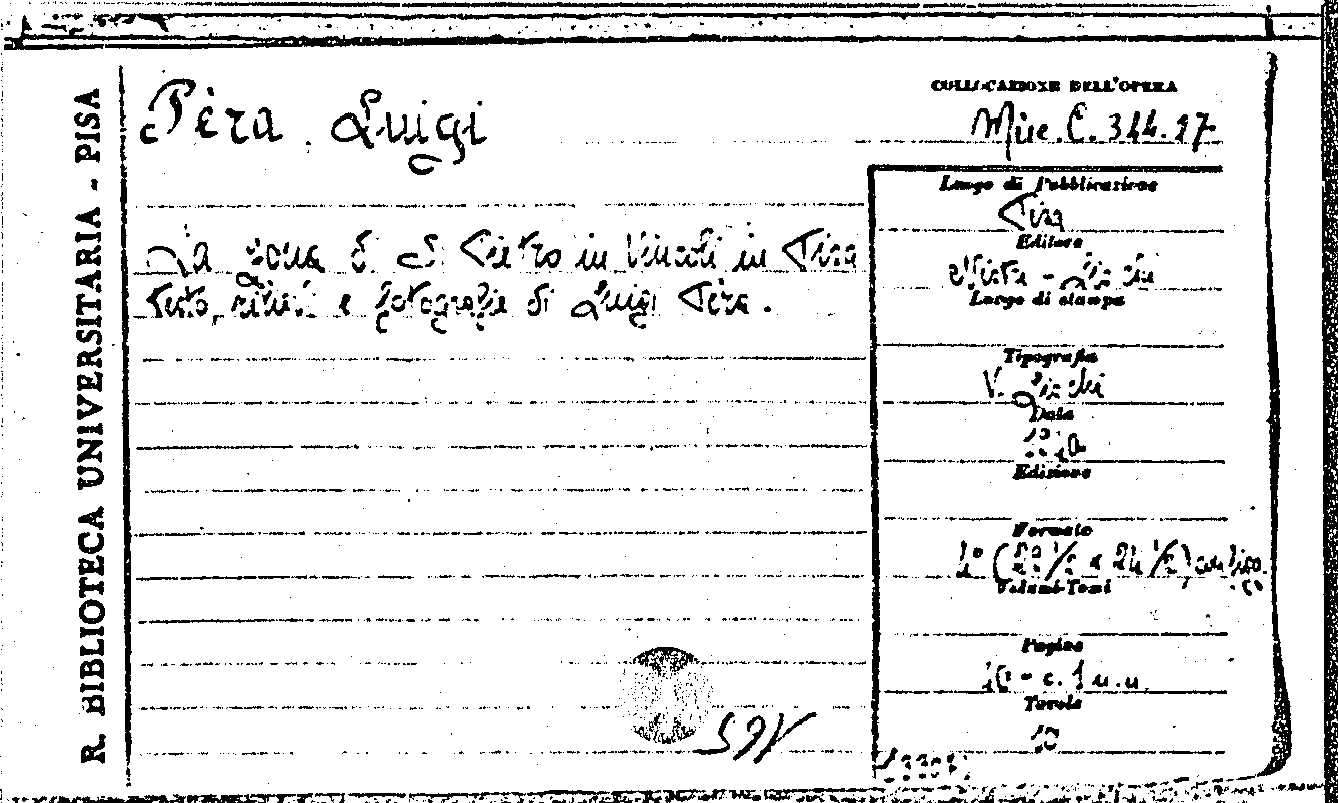 R. BIBLIOTECA UNIVERSITARIA - PISA
Pèra Luigi
COLLOCAZIONE DELL'OPERA
Misc. C. 344.27
La zona di S Pietro in Vincoli in Pisa
Testo, rilievi e fotografie di Luigi Pèra.
Luogo di Pubblicazione
Pisa
Editore
Luogo di stampa
Tipografia
V.
Data
Edizione
Formato
4° (29 1/2 x 24 1/2)
Volumi-Tomi
Pagine
10 - c. 1 n.n.
Tavole
10